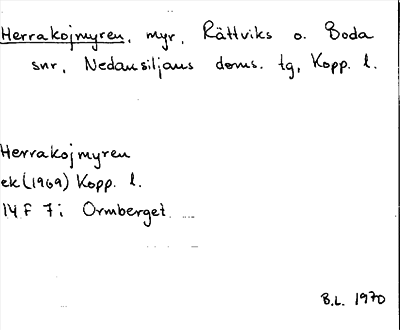 Herrakojmyren, myr, Rättviks o. Boda
snr, Nedansiljans doms. tg, Kopp. l.
Herrakojmyren
ek (1969) Kopp. l.
14 F 7 i Ormberget
B.L. 1970